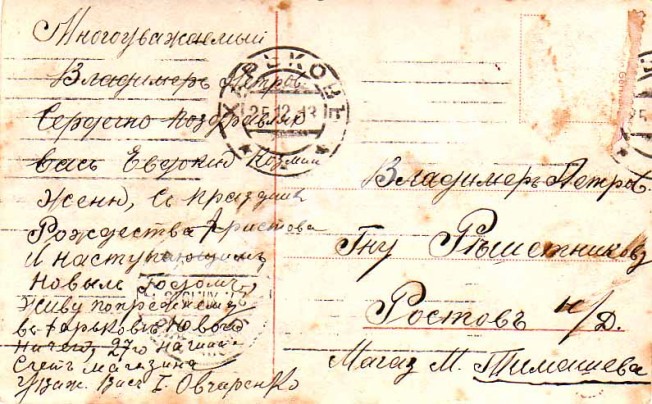 Многоуважаемый
Владимеръ Петров
Сердечно поздравляю
васъ Евдокию Козмин
Женю, съ праздник
Рождества Христова
И наступающимъ
новымъ годомъ
Живу попрежнему
въ Харьковѣ Новаго
ничего, 27го начнай
магазина
Уваж. Васъ І. Овчаренко
ХАРЬКОВЪ
25 12 13
Владимеръ Петров.
Гну Рѣшетникову
Ростовъ н/Д.
Магаз М. Тимашева